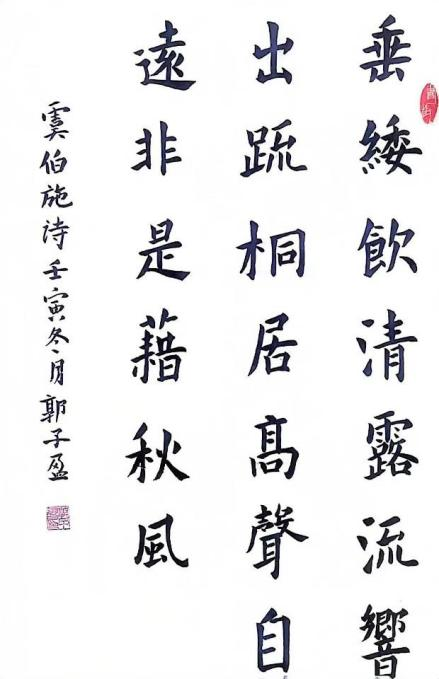 垂緌飲清露流響
出疏桐居高聲自
遠非是藉秋風
虞伯施詩壬寅冬月郭子盈